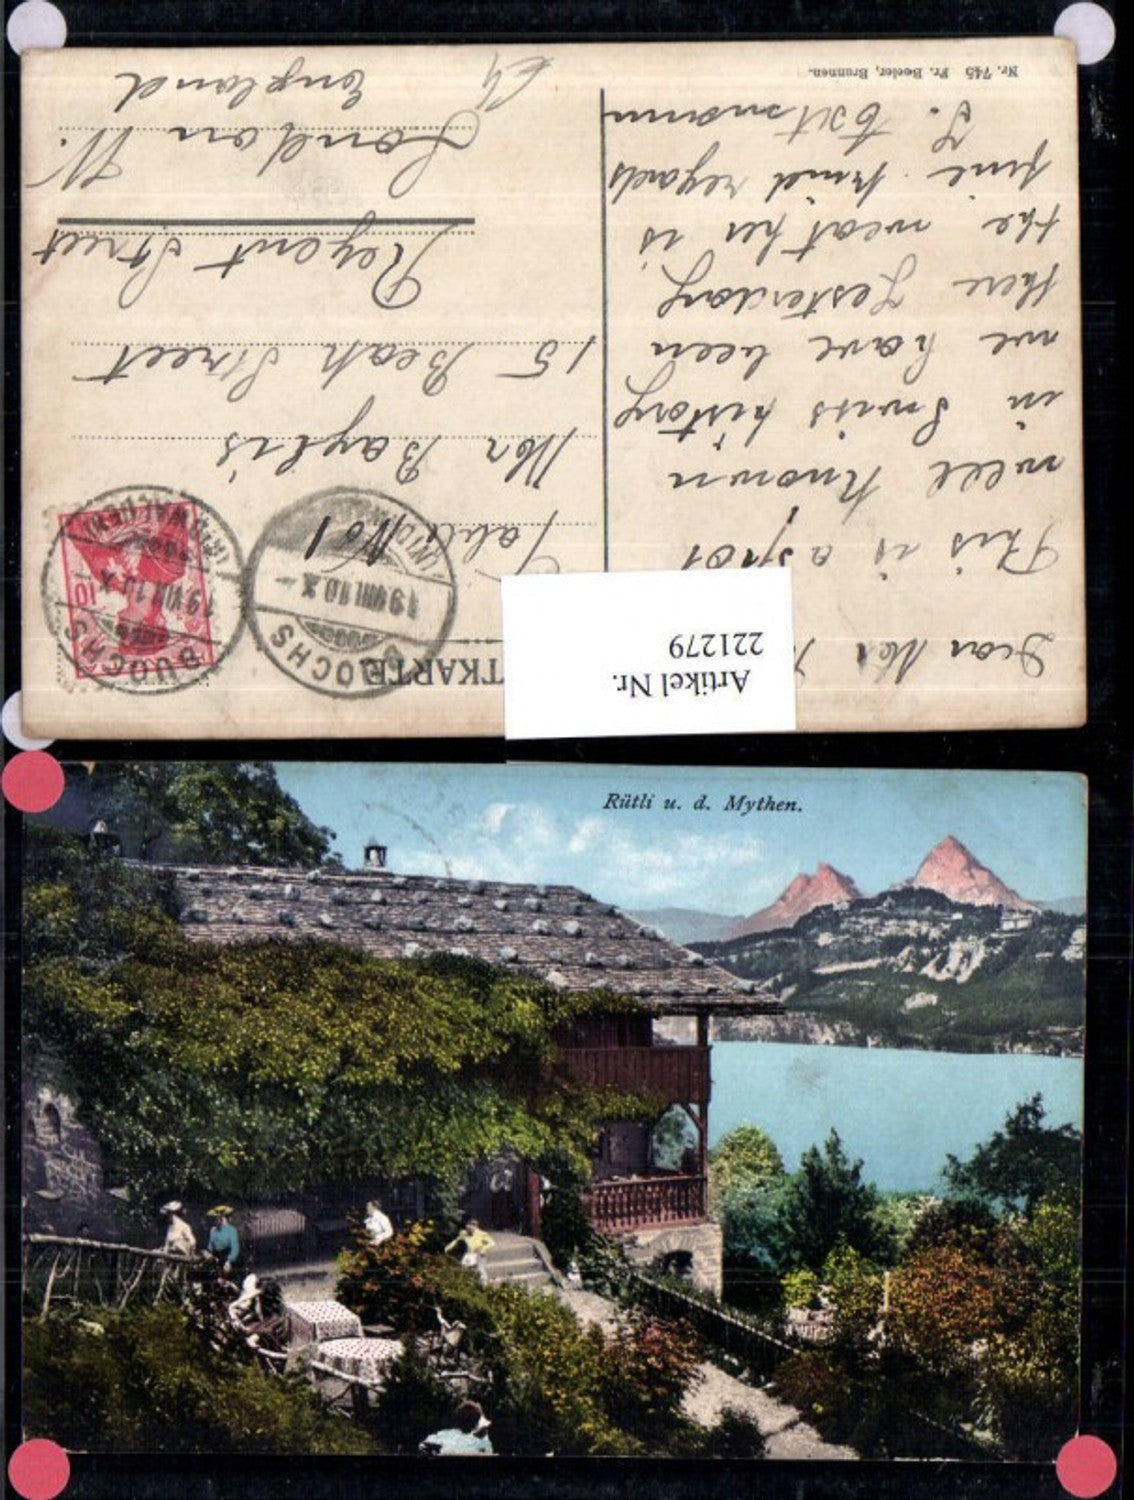 Nr. 745 Fr. Beeler, Brunnen.
Dear
This is a spot
well known
in Swiss history
we have been
there Yesterday
the weather is
fine. Kind regards
POSTKARTE
No 1
Mr Baylis
15 Beak Street
Regent Street
London W.
England
BUOCHS
19.VIII.10.X
(NIDWALDEN)
BUOCHS
19.VIII.10.X
10
Artikel Nr.
221279
Rütli u. d. Mythen.